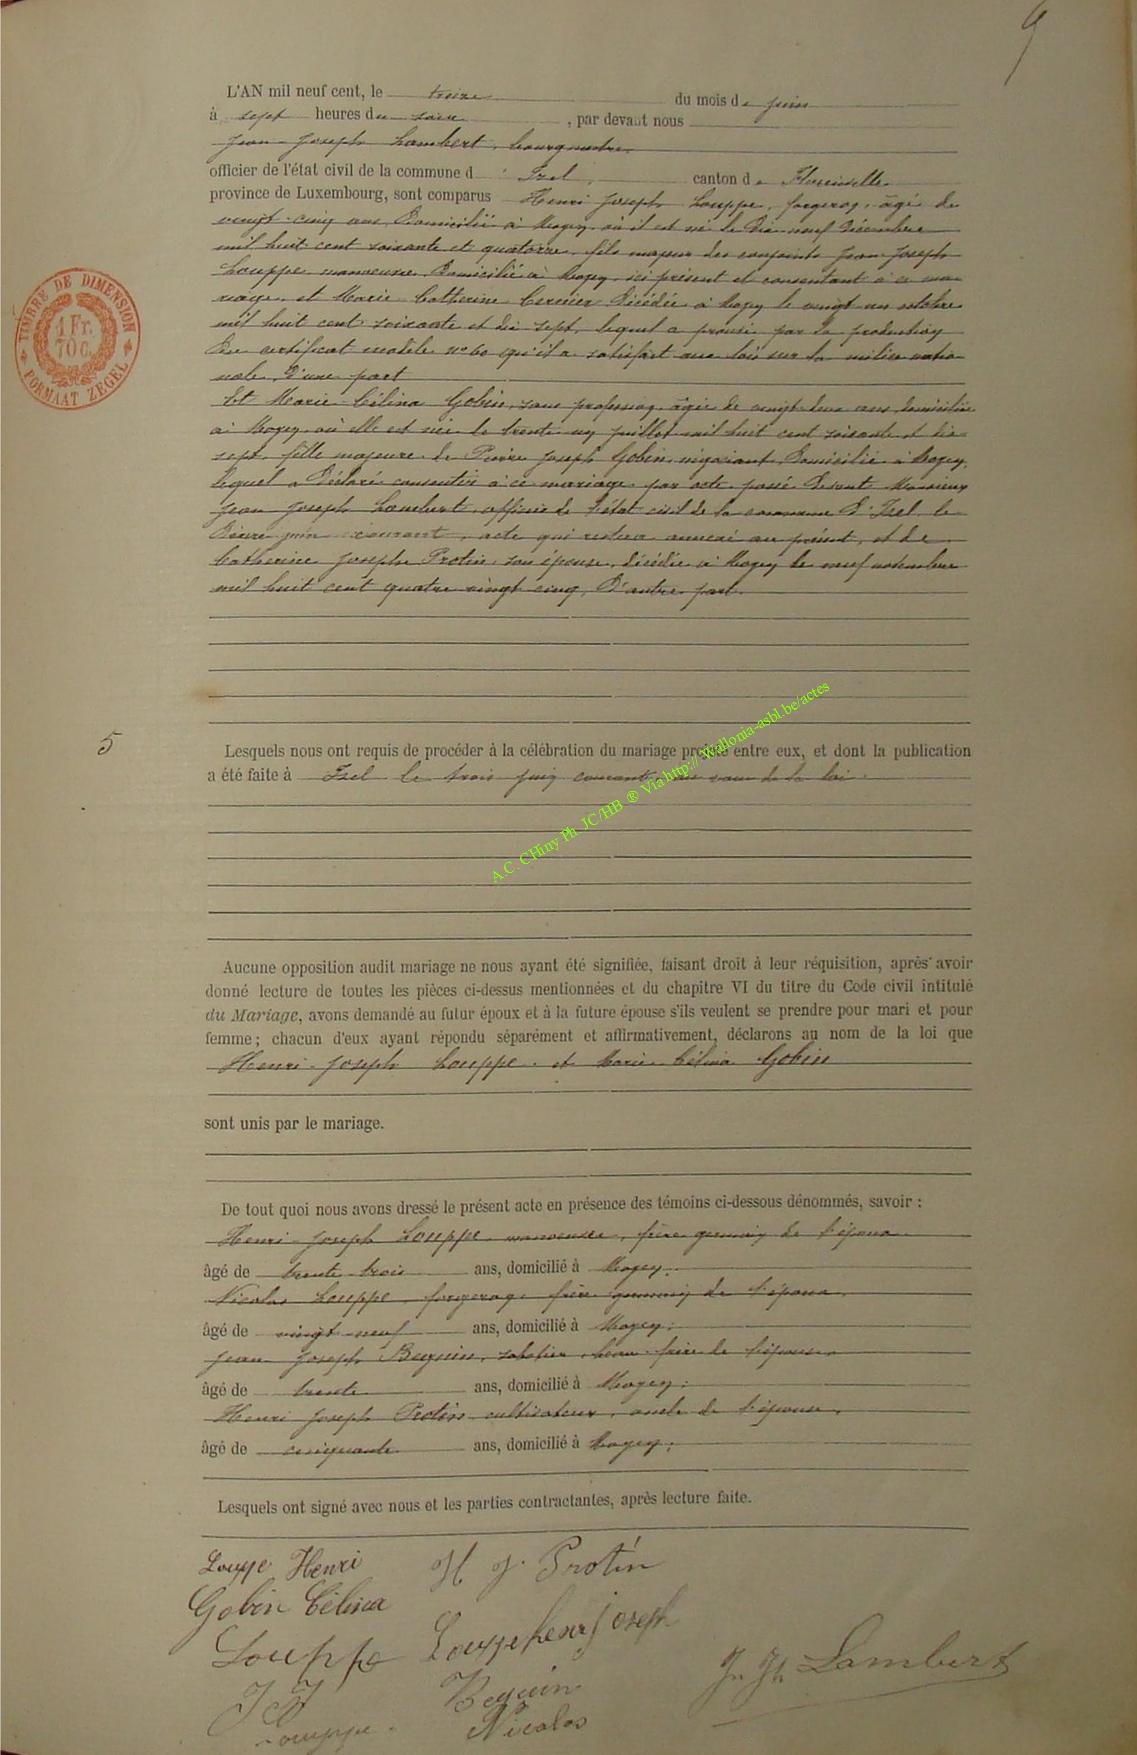 9
L'AN mil neuf cent, le treize du mois de juin
à sept heures du soir, par devant nous
Jean Joseph Lambert, bourgmestre
officier de l'état civil de la commune d'Izel, canton de Florenville
province de Luxembourg, sont comparus Henri Joseph Louppe, forgeron, âgé de
vingt-cinq ans, domicilié à Moyen, où il est né le dix neuf décembre
mil huit cent soixante et quatorze, fils majeur des conjoints Jean Joseph
Louppe manoeuvre, domicilié à Moyen, ici présent et consentant à ce ma-
riage, et Marie Catherine décédée à Moyen le vingt un octobre
mil huit cent soixante et dix sept, lequel a prouvé par la production
du certificat modèle n° 60 qu'il a satisfait aux lois sur la milice natio-
nale, d'une part
Et Marie Célina Gobin, sans profession, âgée de vingt-deux ans, domiciliée
à Moyen, où elle est née le trente un juillet mil huit cent soixante et dix
sept, fille majeure de Pierre Joseph Gobin, négociant, domicilié à Moyen,
lequel a déclaré consentir à ce mariage par acte passé devant Monsieur
Jean Joseph Lambert, officier de l'état civil de la commune d'Izel, le
juin courant, acte qui restera annexé au présent, et de
Catherine Joseph Protin, son épouse, décédée à Moyen le neuf novembre
mil huit cent quatre vingt cinq, d'autre part.
TIMBRE DE DIMENSION
1 Fr.
70 C.
FORMAAT ZEGEL
5
Lesquels nous ont requis de procéder à la célébration du mariage projeté entre eux, et dont la publication
a été faite à Izel le trois juin courant, au vœu de la loi.
A.C. CHiny Ph JC/HB ® Via http:// Wallonia-asbl.be/actes
Aucune opposition audit mariage ne nous ayant été signifiée, faisant droit à leur réquisition, après avoir
donné lecture de toutes les pièces ci-dessus mentionnées et du chapitre VI du titre du Code civil intitulé
du Mariage, avons demandé au futur époux et à la future épouse s'ils veulent se prendre pour mari et pour
femme; chacun d'eux ayant répondu séparément et affirmativement, déclarons au nom de la loi que
Henri-Joseph Louppe et Marie Célina Gobin
sont unis par le mariage.
De tout quoi nous avons dressé le présent acte en présence des témoins ci-dessous dénommés, savoir :
Henri-Joseph Louppe manoeuvre, frère germain de l'époux
âgé de trente trois ans, domicilié à Moyen;
Nicolas Louppe, forgeron, frère germain de l'époux,
âgé de vingt-neuf ans, domicilié à Moyen;
Jean Joseph Beguin, sabotier, beau-frère de l'épouse,
âgé de trente ans, domicilié à Moyen;
Henri Joseph Protin cultivateur, oncle de l'épouse,
âgé de cinquante ans, domicilié à Moyen;
Lesquels ont signé avec nous et les parties contractantes, après lecture faite.
Louppe Henri H J. Protin
Gobin Célina
Louppe Louppe henri joseph
J. Jh Lambert
J J Beguin
Louppe. Nicolas